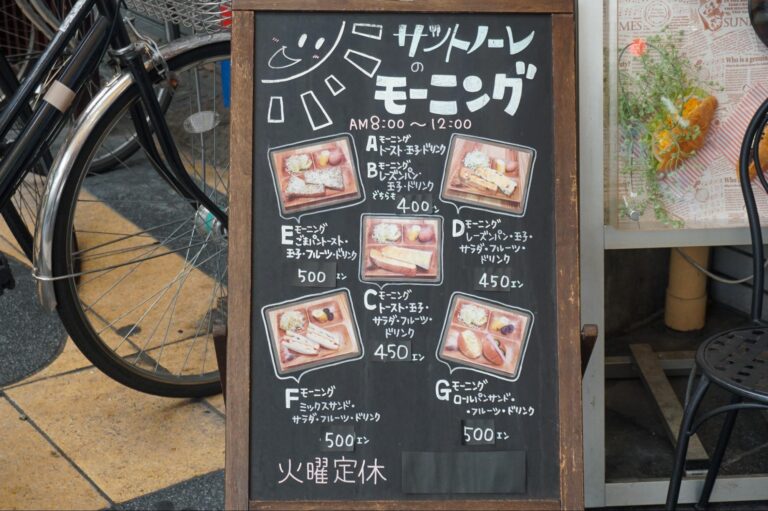 サットノーレ
の
モーニング
AM 8:00 〜 12:00
A モーニング
トースト・玉子・ドリンク
B モーニング
レーズンパン・
玉子・ドリンク
どちらも
400エン
E モーニング
ごまパントースト・
玉子・フルーツ・ドリンク
500エン
D モーニング
レーズンパン・玉子・
サラダ・フルーツ・
ドリンク
450エン
C モーニング
トースト・玉子・
サラダ・フルーツ・
ドリンク
450エン
F モーニング
ミックスサンド・
サラダ・フルーツ・ドリンク
500エン
G モーニング
ロールパンサンド・
・フルーツ・ドリンク
500エン
火曜定休